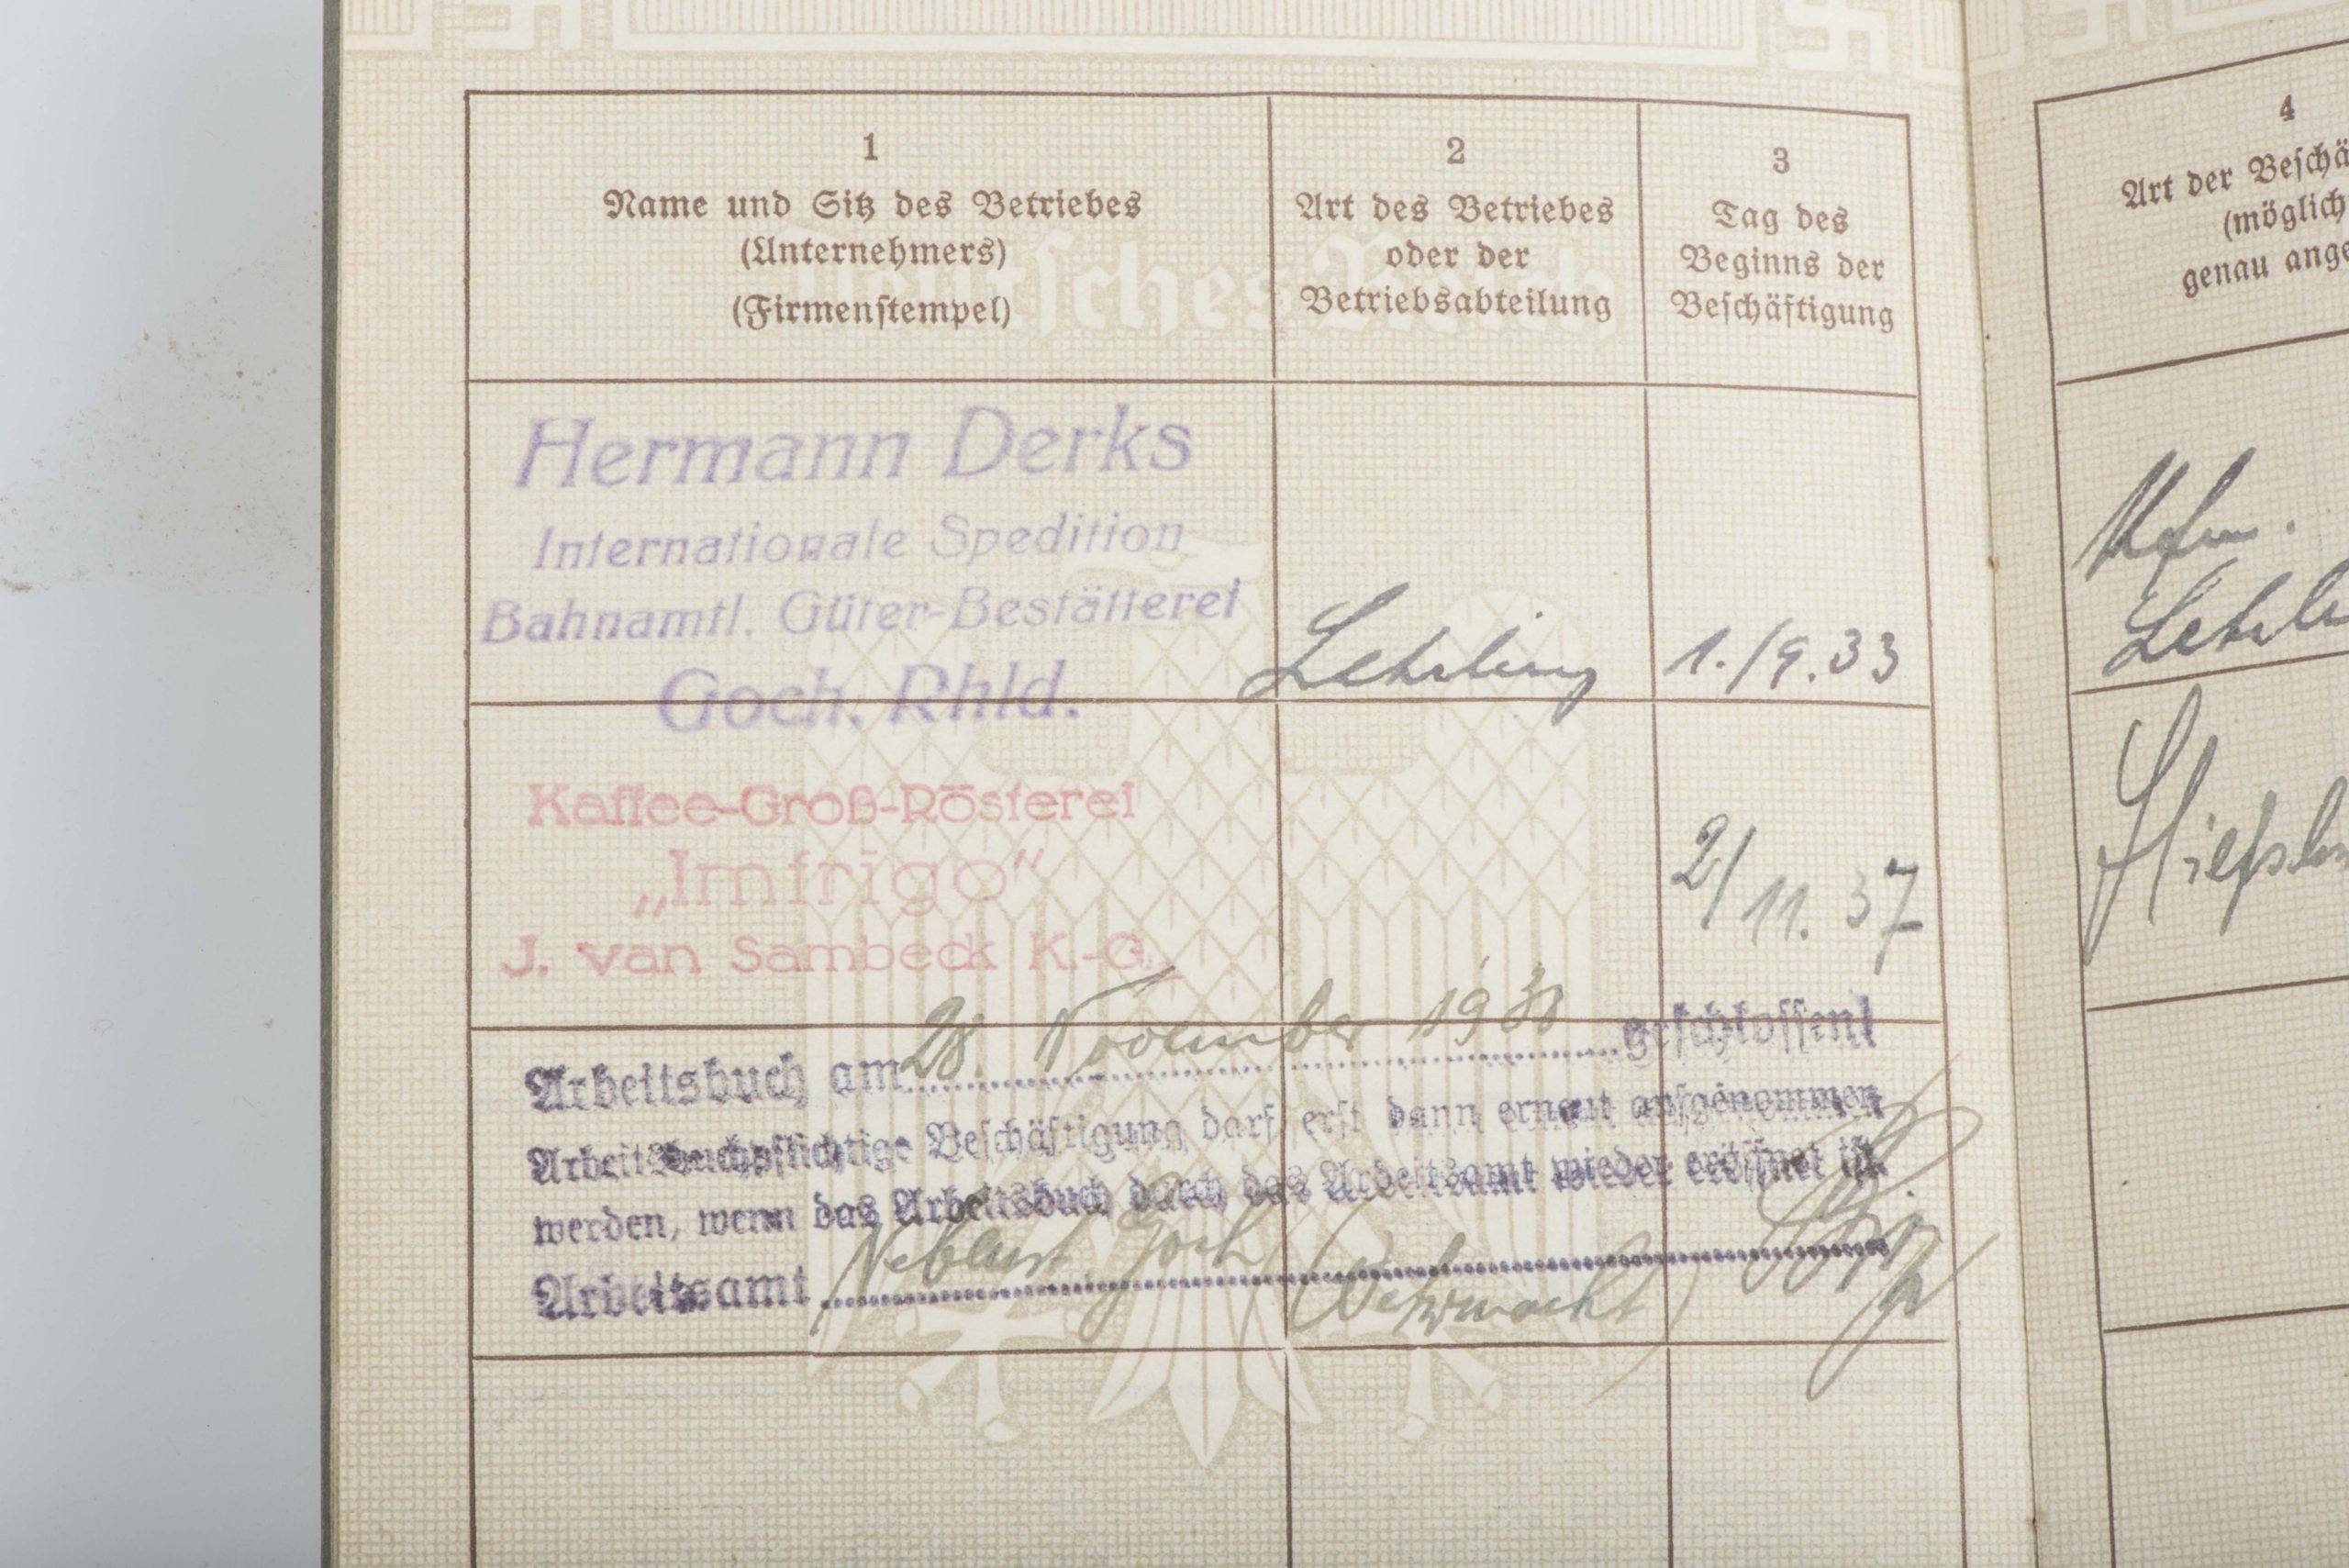 1
Name und Sitz des Betriebes
(Unternehmers)
(Firmenstempel)
2
Art des Betriebes
oder der
Betriebsabteilung
3
Tag des
Beginns der
Beschäftigung
Hermann Derks
Internationale Spedition
Bahnamtl. Güter-Bestätterei
Goch, Rhld.
Lehrling
1./9.33
Kaffee-Groß-Rösterei
„Imfrigo“
J. van Sambeck K.-G.
2/11.37
Arbeitsbuch am 28. November 1938 geschlossen!
Arbeitsbuchpflichtige Beschäftigung darf erst dann erneut aufgenommen
werden, wenn das Arbeitsbuch durch das Arbeitsamt wieder eröffnet ist.
Arbeitsamt Nebenst Goch (Wehrmacht)
4
Art der Beschä
(möglich
genau ange
Lehrli